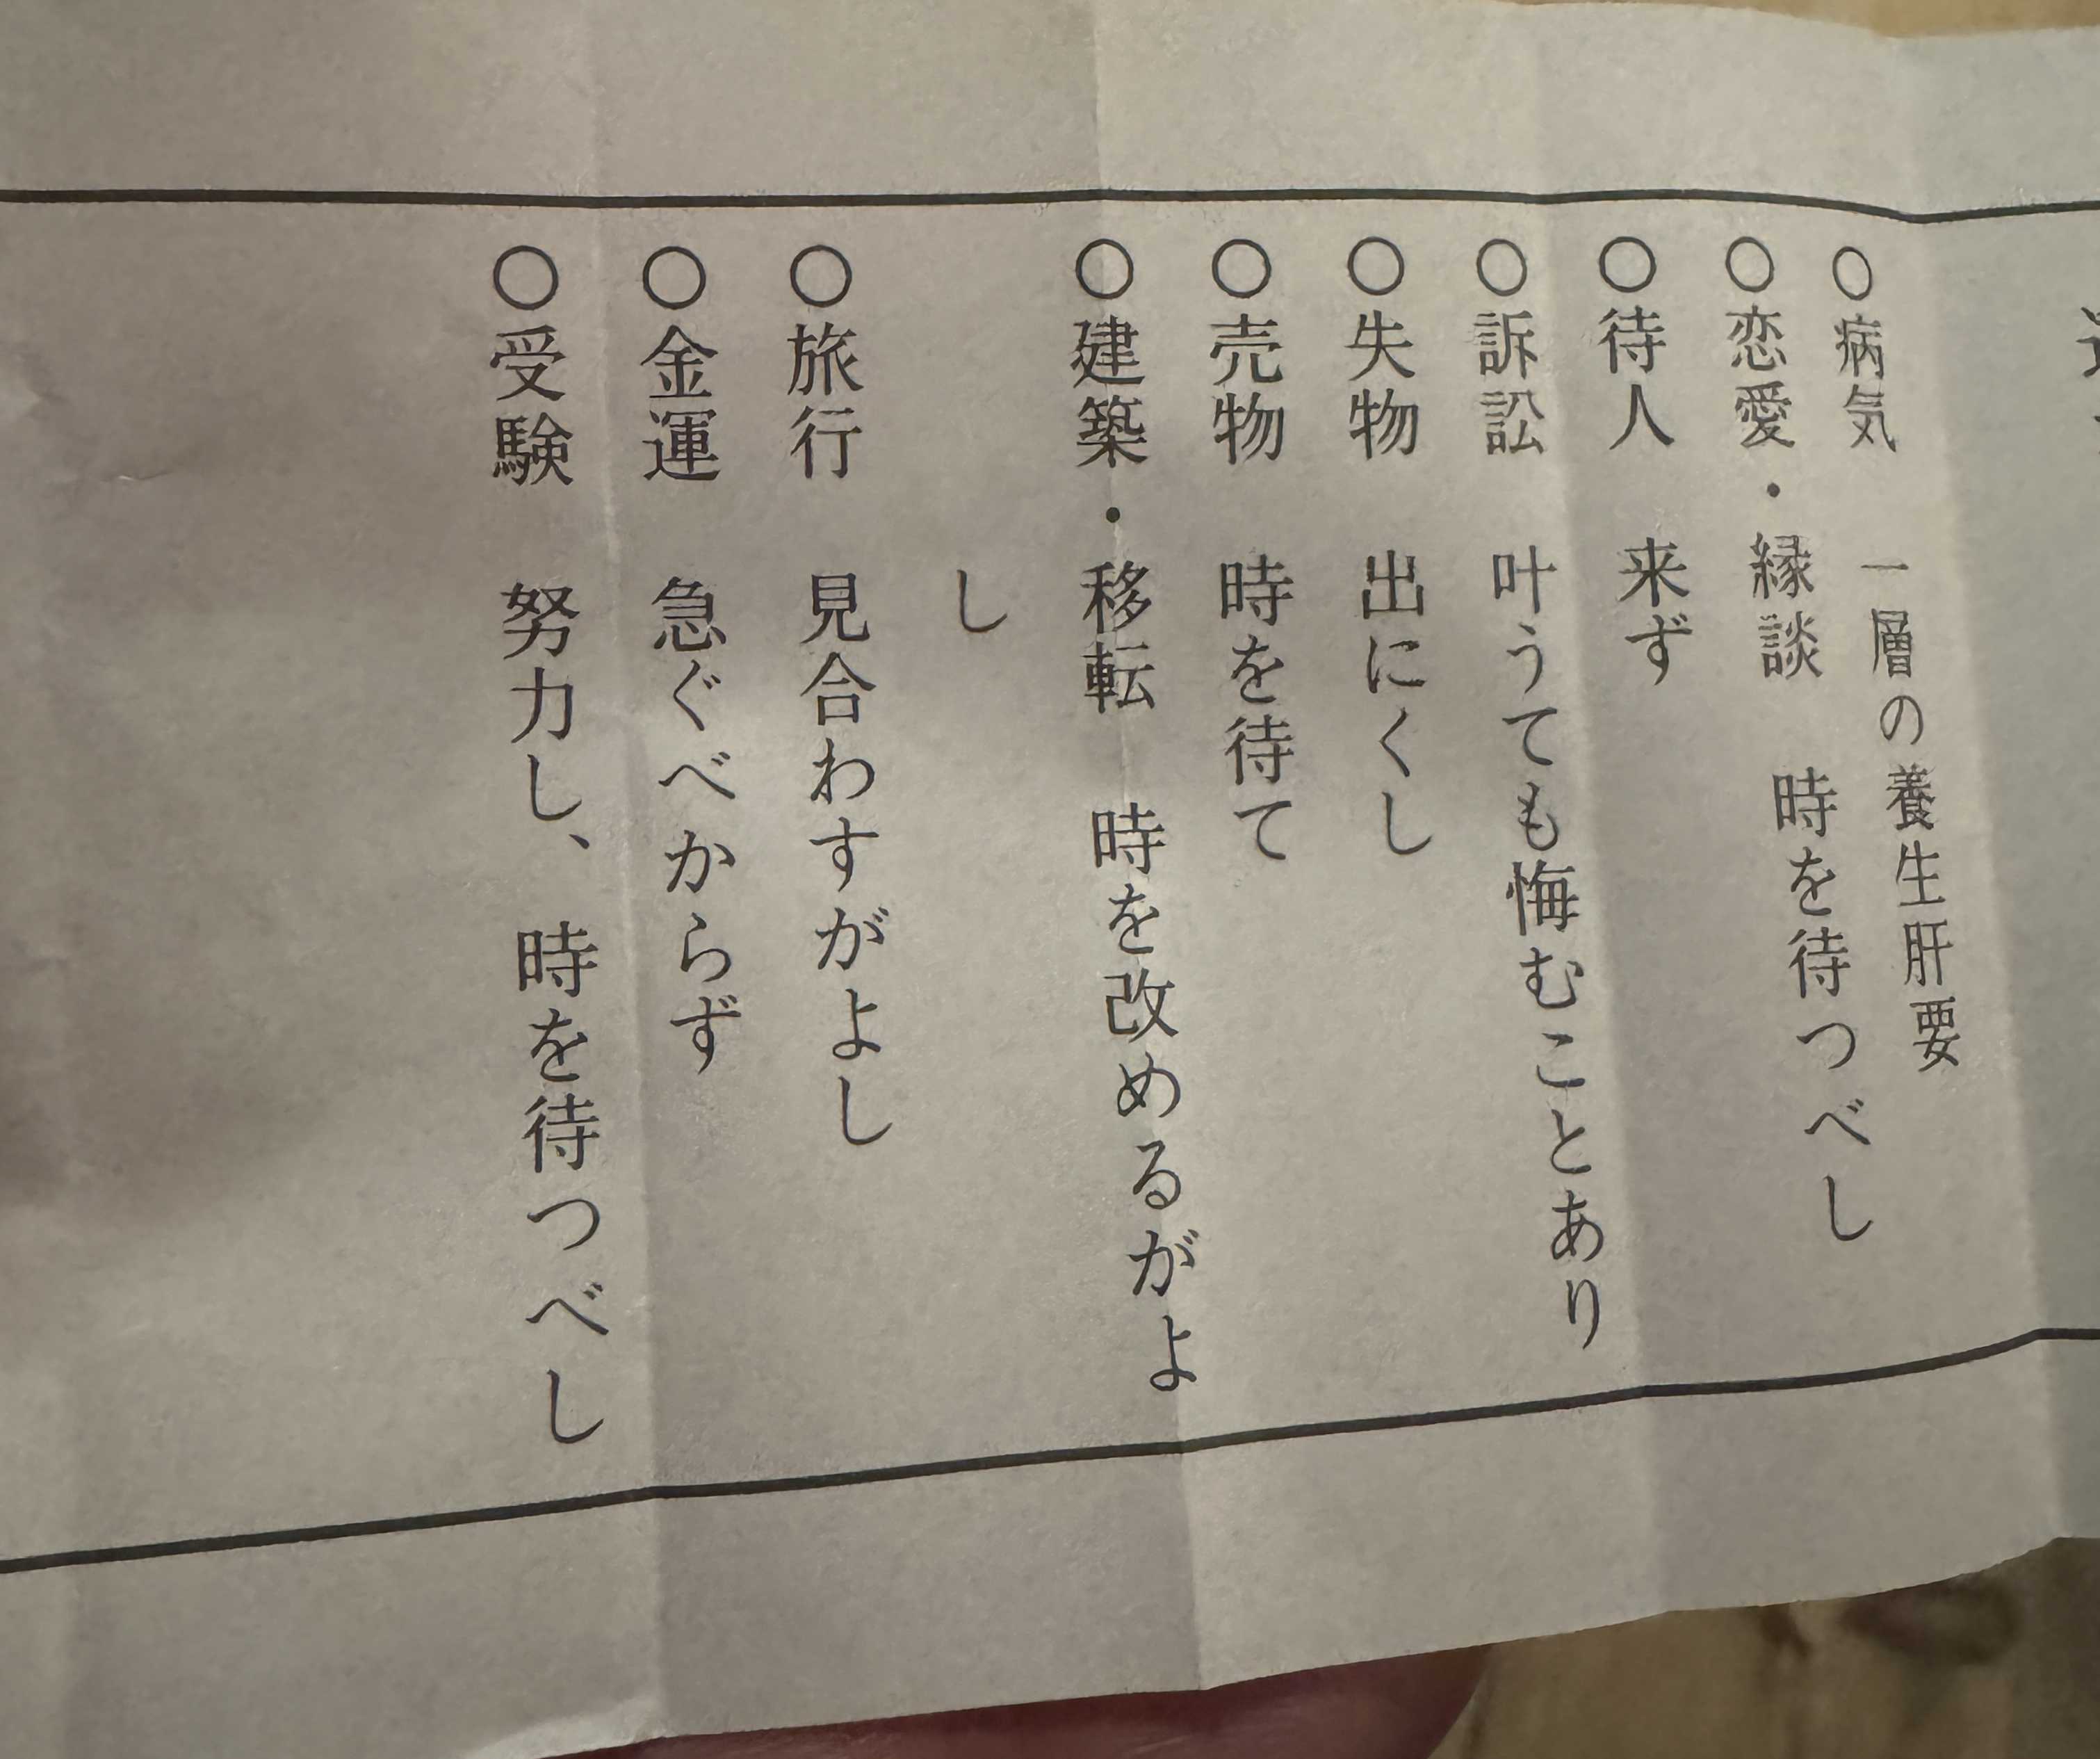 ○病気　一層の養生肝要
○恋愛・縁談　時を待つべし
○待人　来ず
○訴訟　叶うても悔むことあり
○失物　出にくし
○売物　時を待て
○建築・移転　時を改めるがよ
し
○旅行　見合わすがよし
○金運　急ぐべからず
○受験　努力し、時を待つべし